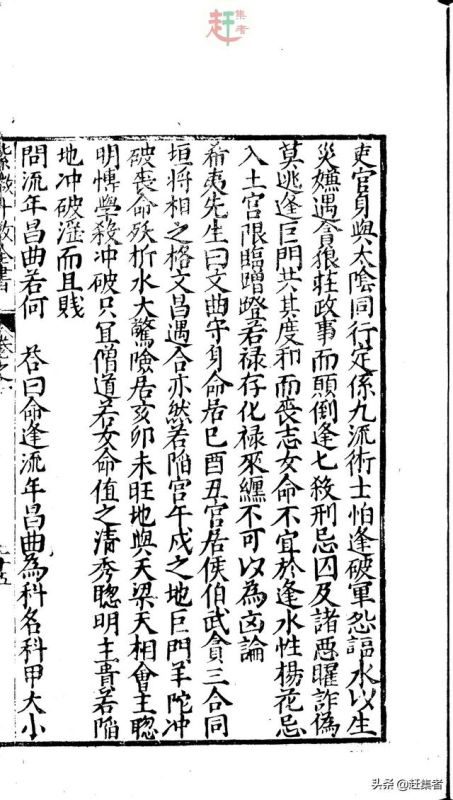 赶集者
吏官身與太陰同行定係九流術士怕逢破軍怨謳水以生
災嫌遇貪狼莅政事而顛倒逢七殺刑忌囚及諸惡曜詐偽
莫逃逢巨門共其度和而喪志女命不宜於逢水性楊花忌
入土宮限臨蹭蹬若禄存化禄來纏不可以為凶論
希夷先生曰文曲守身命居巳酉丑宮居侯伯武貪三合同
垣將相之格文昌遇合亦然若陥宮午戌之地巨門羊陀冲
破喪命殀折水大驚險居亥卯未旺地與天梁天相會主聰
明博學殺冲破只冝僧道若女命值之清秀聰明主貴若陥
地冲破滛而且賤
問流年昌曲若何　荅曰命逢流年昌曲為科名科甲大小
紫微斗數全書　卷之　五
头条 @赶集者